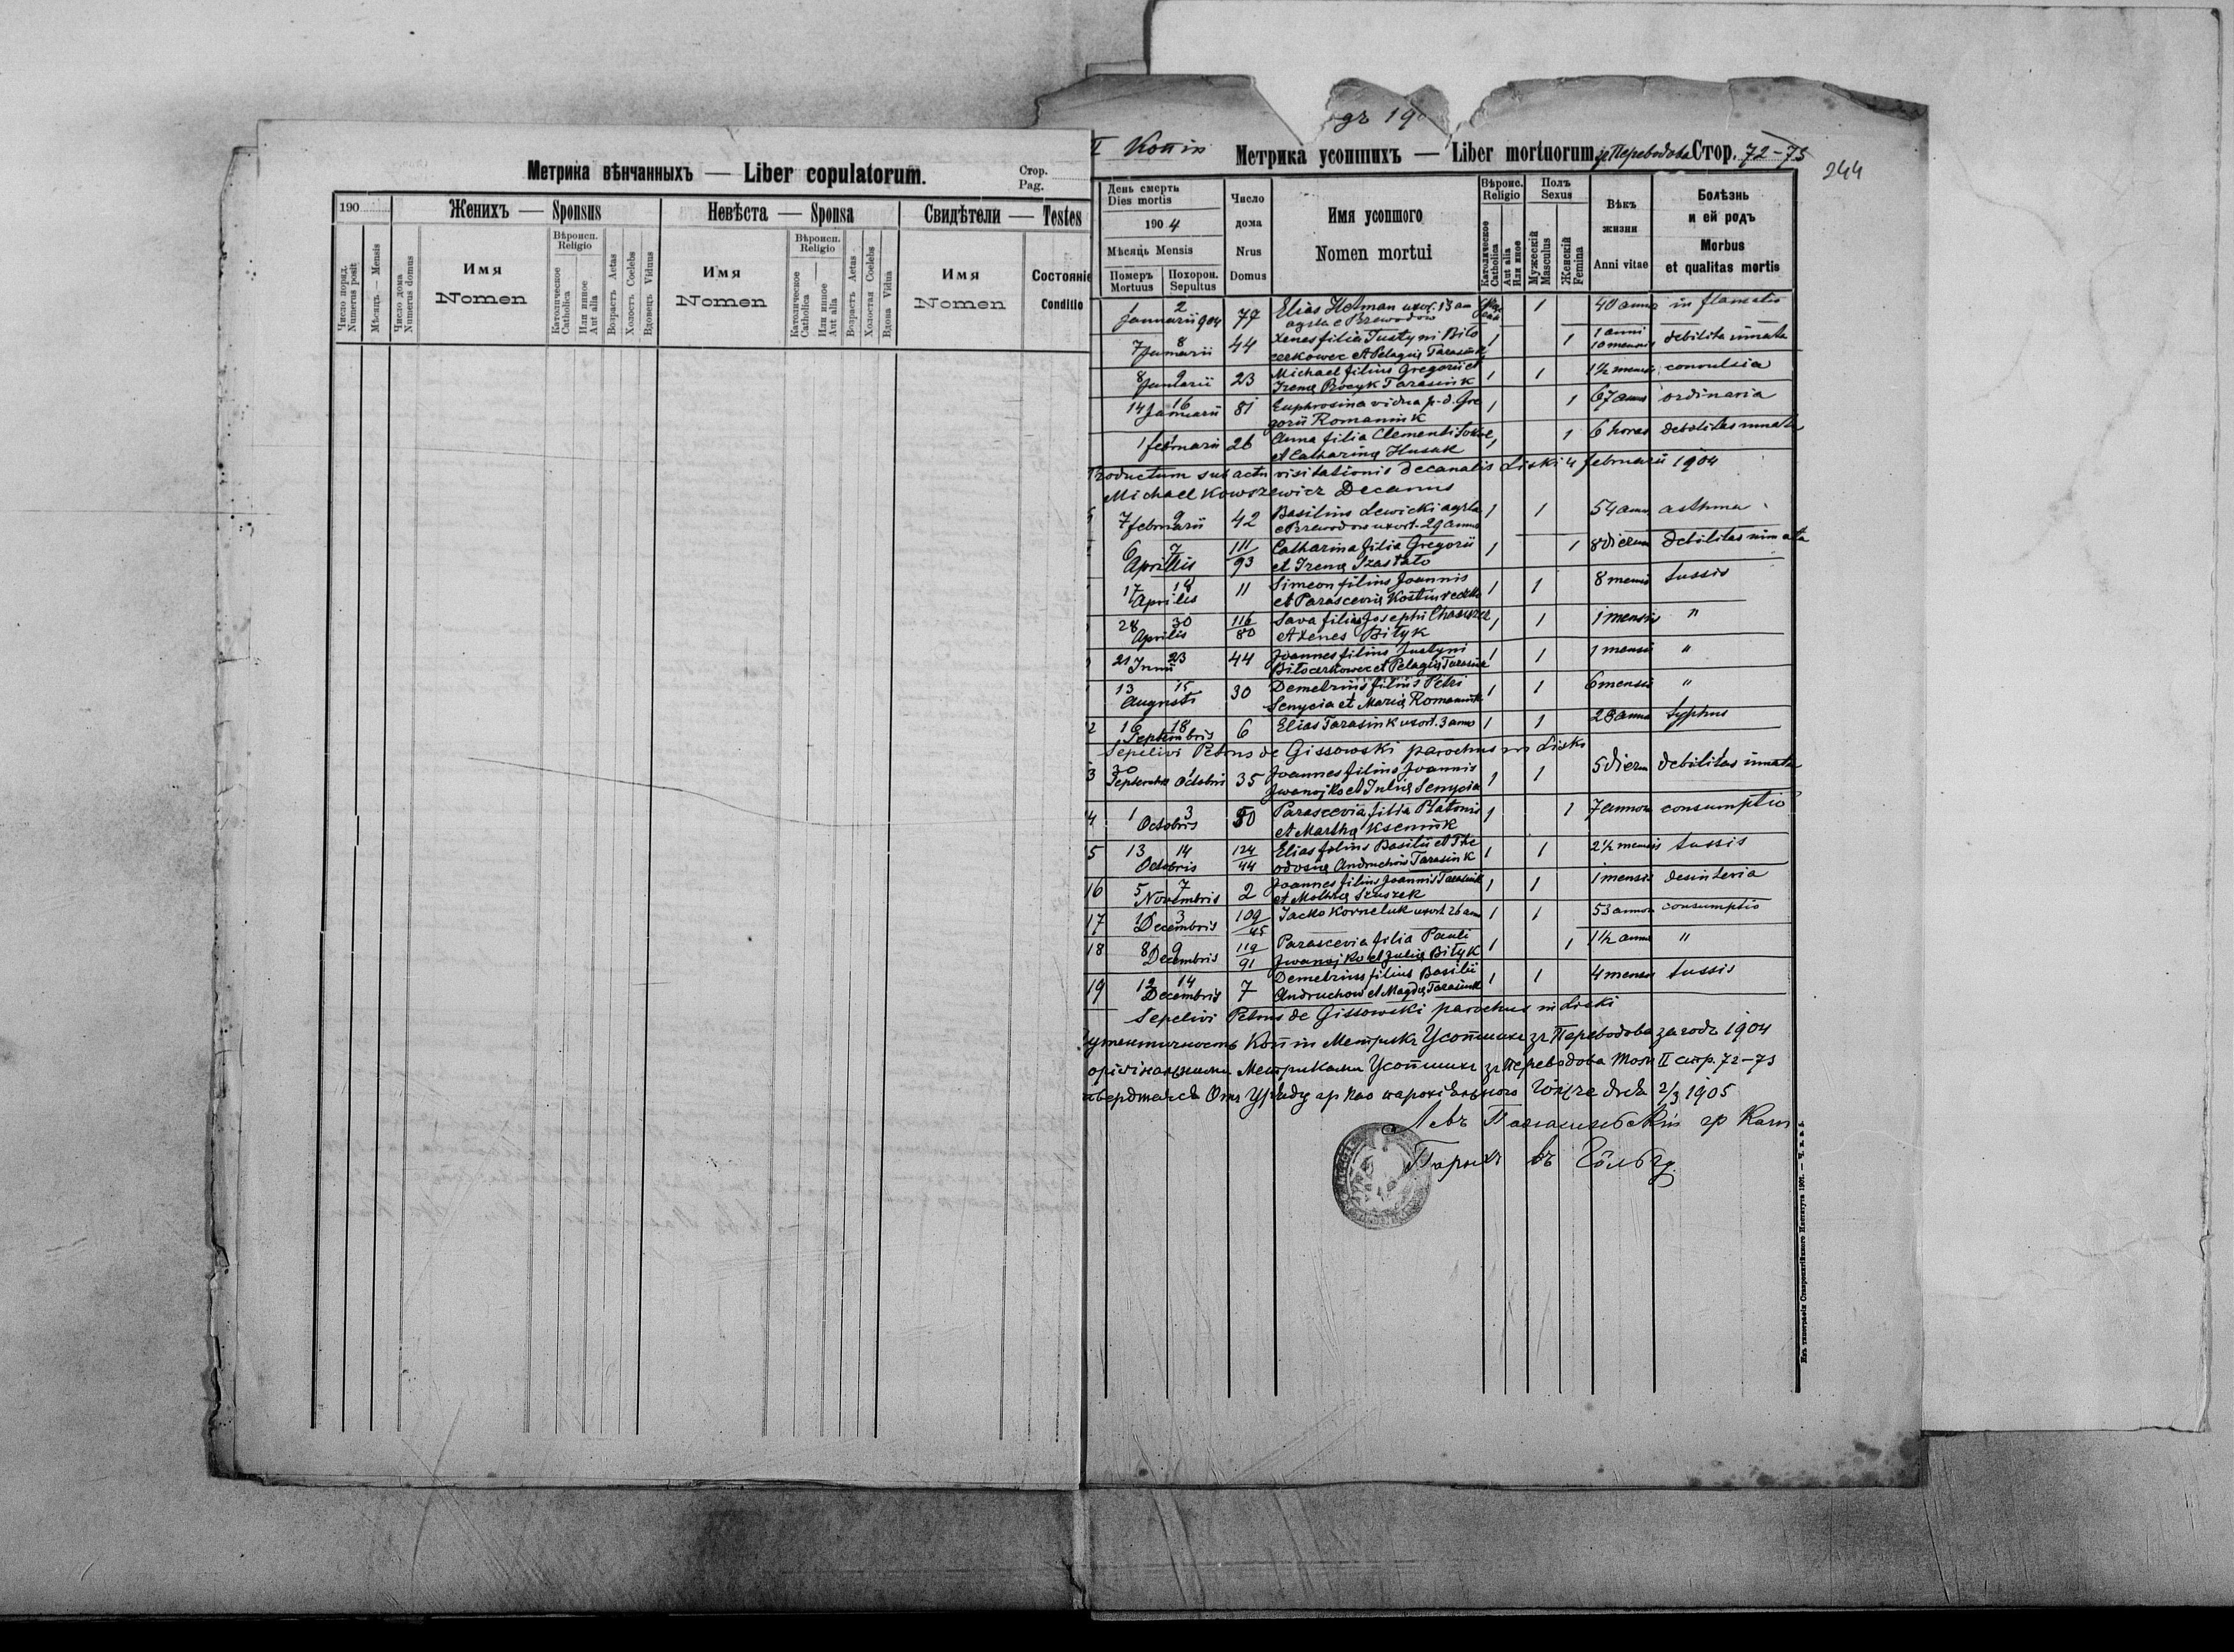 Метрика вѣнчанныхъ — Liber copulatorum.
Стор.
Pag.
190
Женихъ — Sponsus
Невѣста — Sponsa
Свидѣтели — Testes
Число поряд.
Numerus posit
Мѣсяцъ — Mensis
Число дома
Numerus domus
Имя
Nomen
Вѣроисп.
Religio
Католическое
Catholica
Или инное
Aut alia
Возрастъ Aetas
Холостъ Coelebs
Вдовецъ Viduus
Имя
Nomen
Вѣроисп.
Religio
Католическое
Catholica
Или инное
Aut alia
Возрастъ Aetas
Холостая Coelebs
Вдова Vidua
Имя
Nomen
Состояніе
Conditio
дъ 19
Копія Метрика усопшихъ — Liber mortuorum зъ Переводова Стор. 72-73
244
День смерть
Dies mortis
1904
Мѣсяцъ Mensis
Померъ
Mortuus
Похорон.
Sepultus
Число
дома
Nrus
Domus
Имя усопшого
Nomen mortui
Вѣроис.
Religio
Католическое
Catholica
Aut alia
Или иное
Полъ
Sexus
Мужескій
Masculus
Женскій
Femina
Вѣкъ
жизни
Anni vitae
Болѣзнь
и ей родъ
Morbus
et qualitas mortis
2 Januarii 904 77 Elias Hetman uxor. 13 an 1 40 annor in flamatio
agrla e Brzewodow
7 8 Januarii 44 Xenes filia Justyni Biło 1 1 1 anni 10 mensis debilita innata
cerkowec et Pelagię Tarasiuk
8 9 Januarii 23 Michael filius Gregorii et 1 1 1½ mensis convulsia
Irenę Bocyk Tarasiuk
14 16 Januarii 81 Euphrosina vidua p. d. Gre 1 1 67 annor ordinaria
gorii Romaniuk
1 februarii 26 Anna filia Clementi 1 1 6 horas debilitas innata
et Catharinę Husak
Productum sub actu visitationis decanalis Liski 4 februarii 1904
Michael Kowszewicz Decanus
7 9 februarii 42 Basilius Lewicki agrla 1 1 54 ann asthma
e Brzewodow uxort. 29 annor
6 7 Aprillis 111/93 Catharina filia Gregorii 1 1 8 dierum debilitas innata
et Irenę Szastało
17 18 Aprilis 11 Simeon filius Joannis 1 1 8 mensis tussis
et Parascevię
28 30 Aprilis 116/80 Sava filius Josephi 1 1 1 mensis "
et Xenes Bityk
21 23 Junii 44 Joannes filius Justyni 1 1 1 mensis "
Biłocerkowec et Pelagię Tarasiuk
13 15 Augusti 30 Demetrius filius Petri 1 1 6 mensis "
Senycia et Marię Romaniuk
2 16 18 Septembris 6 Elias Tarasiuk uxort. 3 anno 1 1 28 annor typhus
Sepelivi Petrus de Gissowski parochus in Liski
3 30 Septembris 1 Octobris 35 Joannes filius Joannis 1 1 5 dierum debilitas innata
Jwanojko et Julię Senycia
4 1 3 Octobris 50 Parascevia filia Platonis 1 1 7 annor consumptio
et Marthę Kseniuk
5 13 14 Octobris 124/44 Elias filius Basilii et The 1 1 2½ mensis tussis
odosię Andruchow Tarasiuk
16 5 7 Novembris 2 Joannes filius Joannis Tarasiuk 1 1 1 mensis desinteria
et Motrię Szuszek
17 1 3 Decembris 109/45 Jacko Korneluk uxort 26 ann 1 1 53 annor consumptio
18 8 9 Decembris 119/91 Parascevia filia Pauli 1 1 1½ annor "
Jwanojko et Julię Bityk
19 12 14 Decembris 7 Demetrius filius Basilii 1 1 4 mensis tussis
Andruchow et Magdę Tarasiuk
Sepelivi Petrus de Gissowski parochus in Liski
утентичность Копіи Метрикъ Усопшихъ зъ Переводова за годъ 1904
оригінальными Метриками Усопшихъ зъ Переводова Томъ II стр. 72-73
тверджаєсь Отъ Уряду гр кат парохіального дня 2/3 1905
Левъ гр Кат
Парохъ въ
Изъ типографіи Ставропигійского Института 1901. — Ч. п. з. 4.